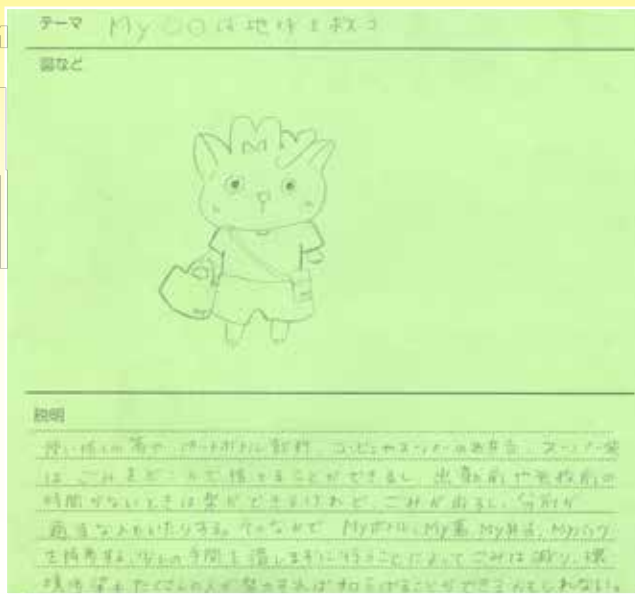 テーマ My○○は地球を救う
図など
M
説明
使い捨ての箸や ペットボトル飲料、コンビニやスーパーのお弁当、スーパー袋
は ごみをどこかで捨てることができるし、出勤前や登校前の
時間がないときは楽ができるけれど、ごみが出るし、分別が
適当な人もいたりする。そのなかで Myボトル、My箸、My弁当、Myバッグ
を持参する、少しの手間を惜しまずに行うことによってごみは減り、環
境汚染もたくさんの人が努力すれば和らげることができるかもしれない。